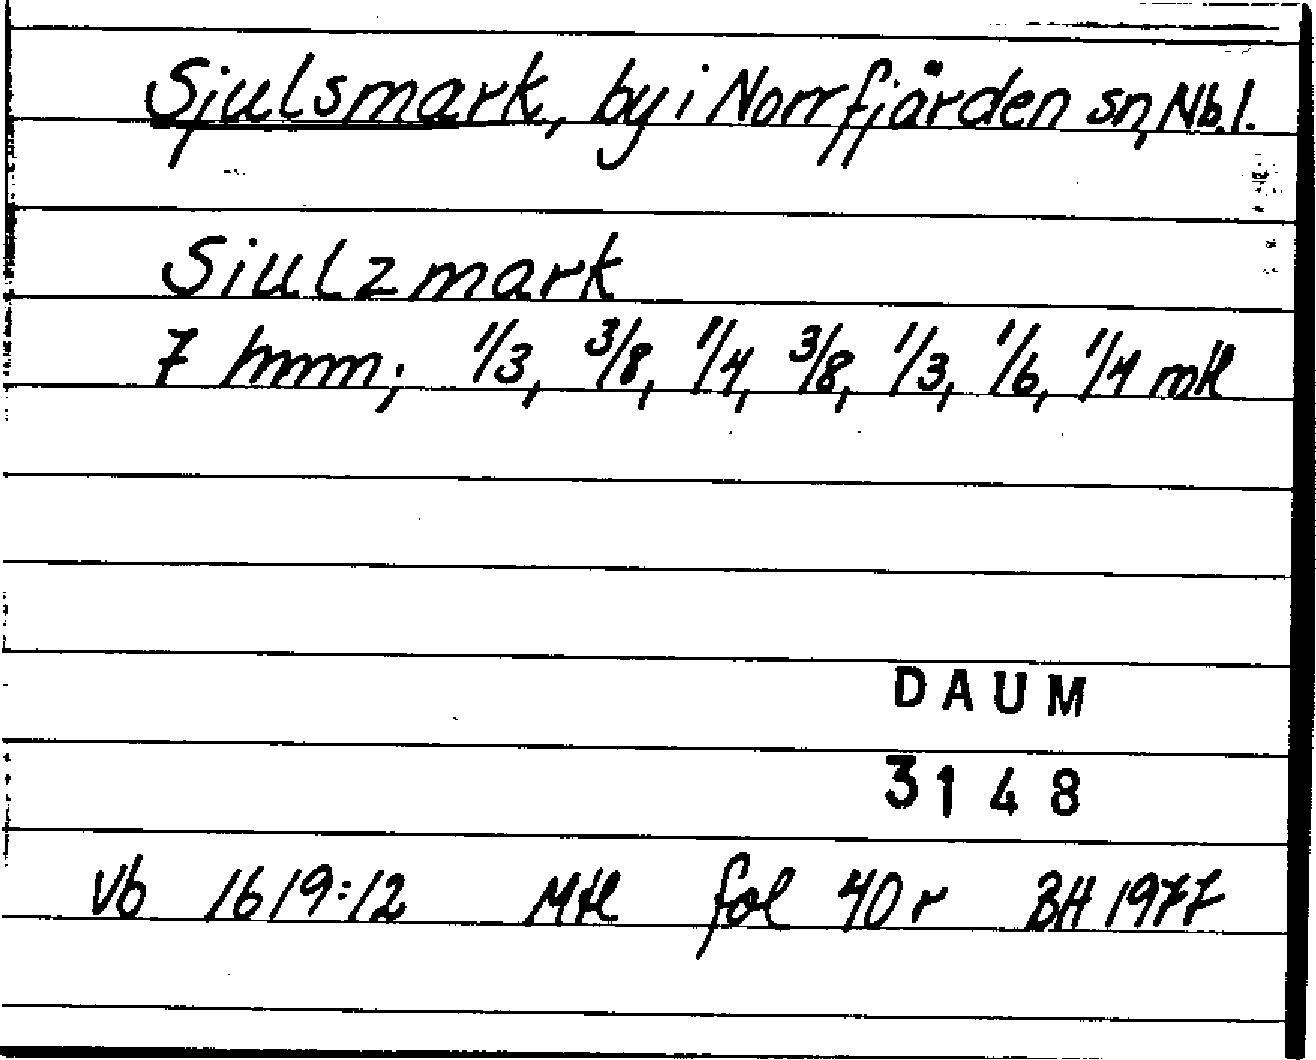 Sjulsmark, by i Norrfjärden sn, Nb.l.
Siulzmark
7 hmm; 1/3, 3/8, 1/4, 3/8, 1/3, 1/6, 1/4 mtl
DAUM
3148
Vb 1619:12 Mtl fol 40 r BH 1977